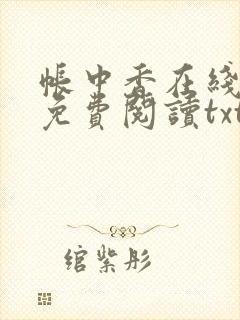 帳中香在綫
免費閱讀txt
綰紫彤